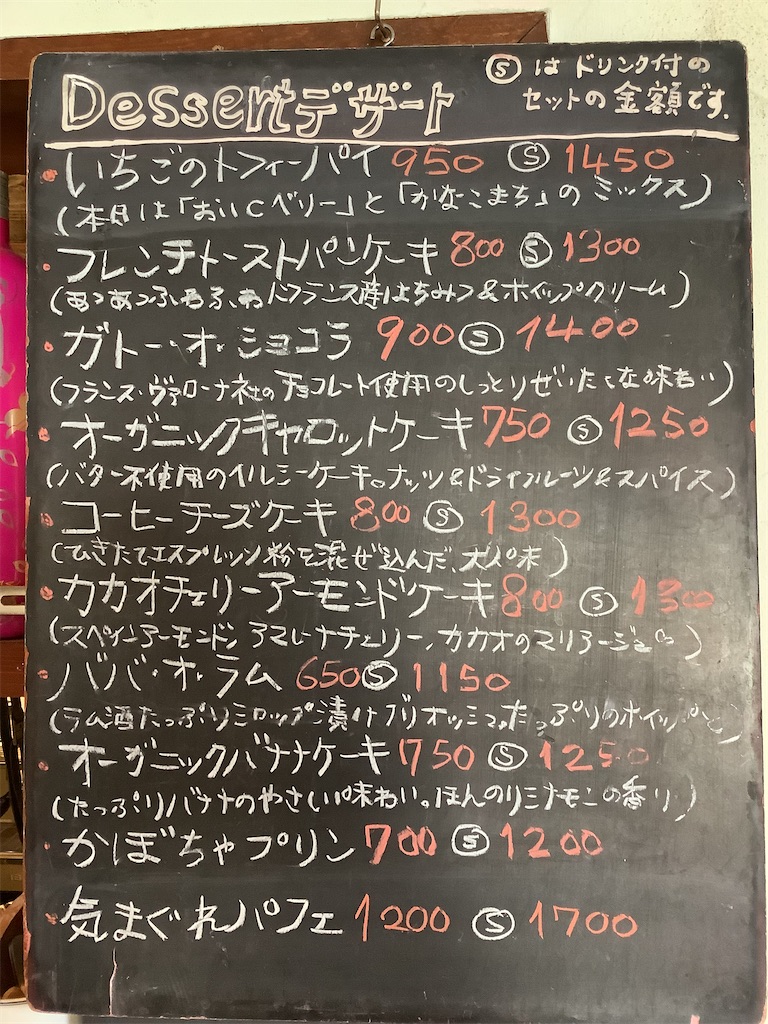 Dessertデザート
Ⓢ は ドリンク付の
セットの金額です.
いちごのトフィーパイ 950 Ⓢ 1450
(本日は「おいCベリー」と「かなこまち」のミックス)
フレンチトーストパンケーキ 800 Ⓢ 1300
(あつあつふわふわ フランス産はちみつ&ホイップクリーム)
ガトー・オ・ショコラ 900 Ⓢ 1400
(フランス・ヴァローナ社のチョコレート使用のしっとりぜいたくな味わい)
オーガニックキャロットケーキ 750 Ⓢ 1250
(バター不使用のヘルシーケーキ。ナッツ&ドライフルーツ&スパイス)
コーヒーチーズケーキ 800 Ⓢ 1300
(ひきたてエスプレッソ粉を混ぜ込んだ、大人味)
カカオチェリーアーモンドケーキ 800 Ⓢ 1300
(スペインアーモンド、アマレーナチェリー、カカオのマリアージュ)
ババ・オ・ラム 650 Ⓢ 1150
(ラム酒たっぷりシロップ漬けブリオッシュ。たっぷりのホイップと)
オーガニックバナナケーキ 750 Ⓢ 1250
(たっぷりバナナのやさしい味わい。ほんのりシナモンの香り)
かぼちゃプリン 700 Ⓢ 1200
気まぐれパフェ 1200 Ⓢ 1700